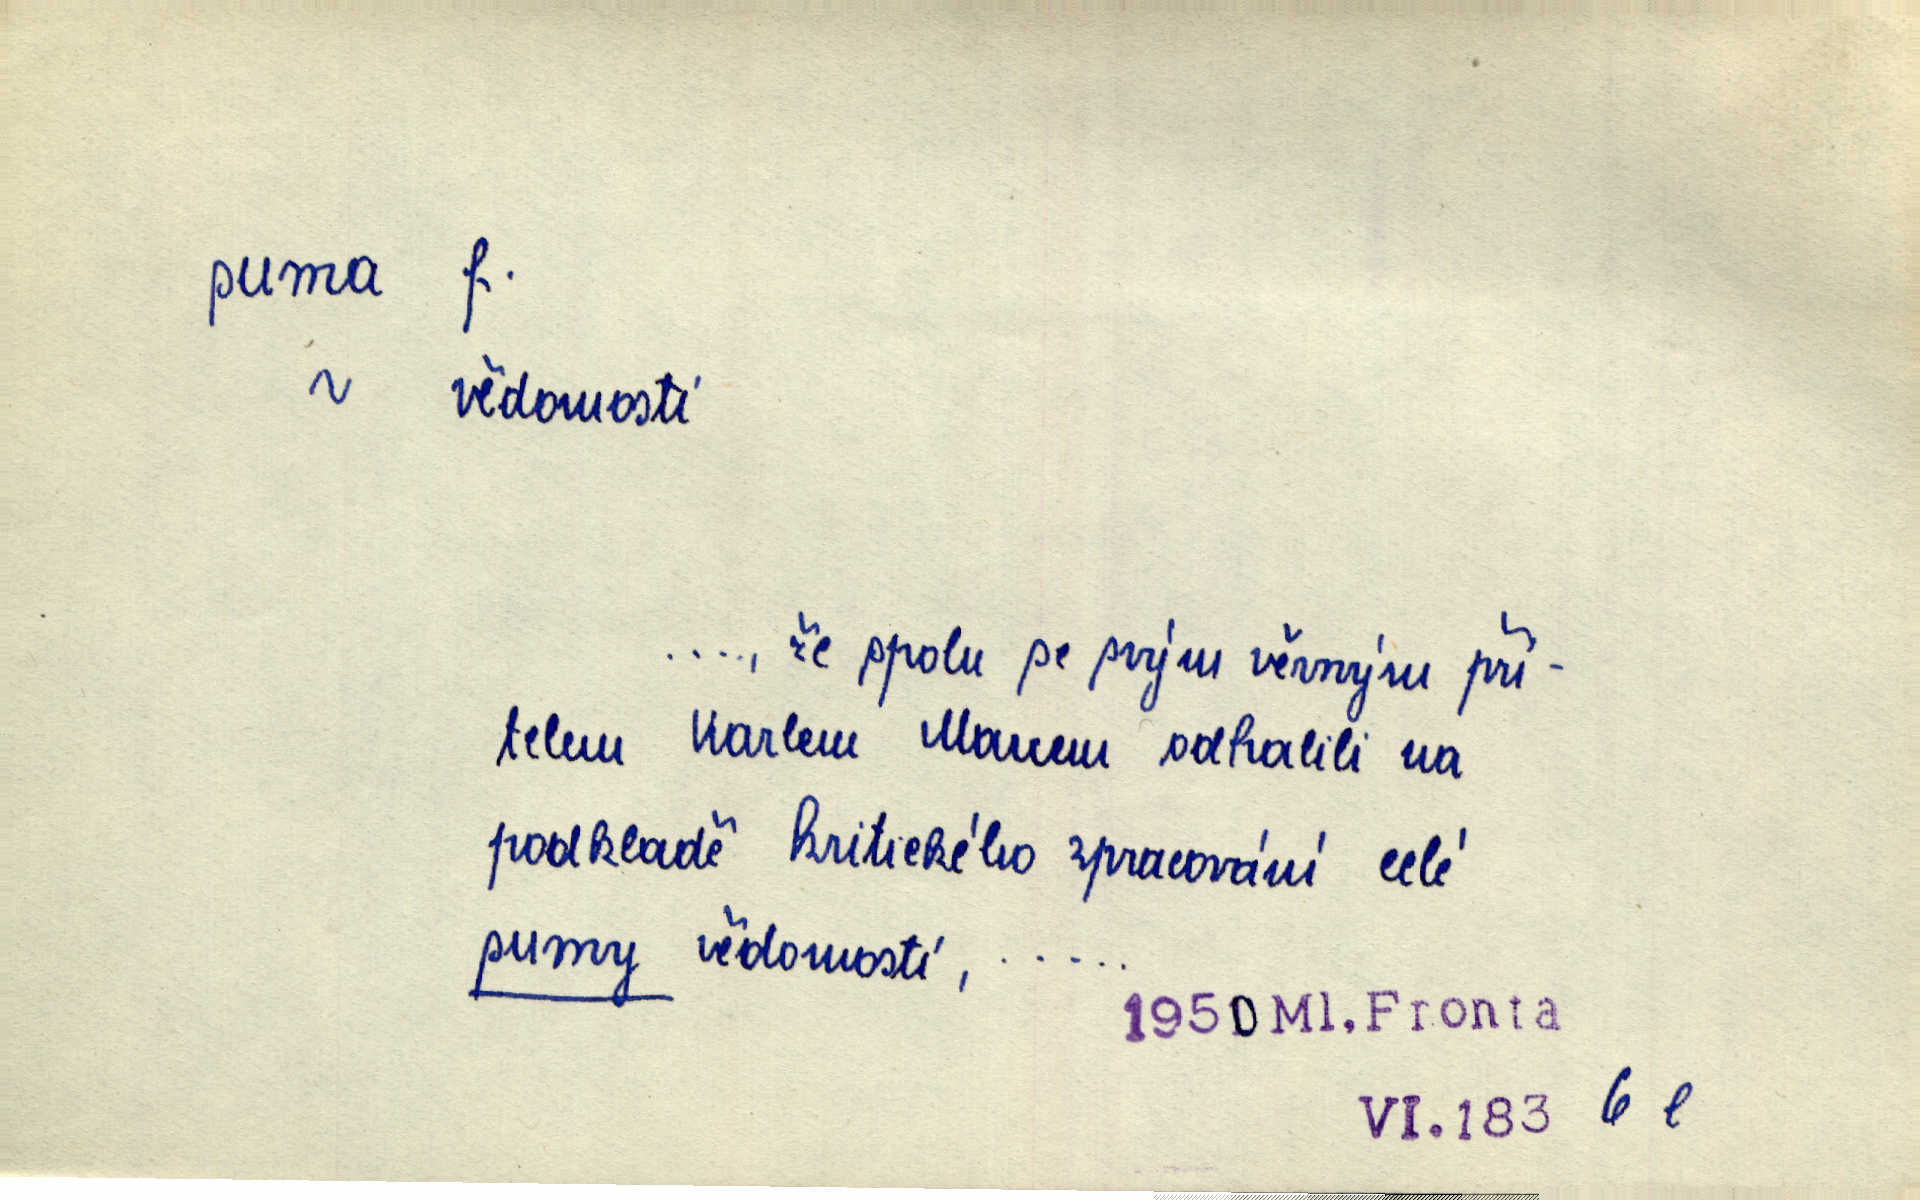 suma f.
~ vědomostí
...., že spolu se svým věrným pří-
telem Karlem Marxem odhalili na
podkladě kritického zpracování celé
sumy vědomostí, .....
1950 Ml.Fronta
VI.183 6 l